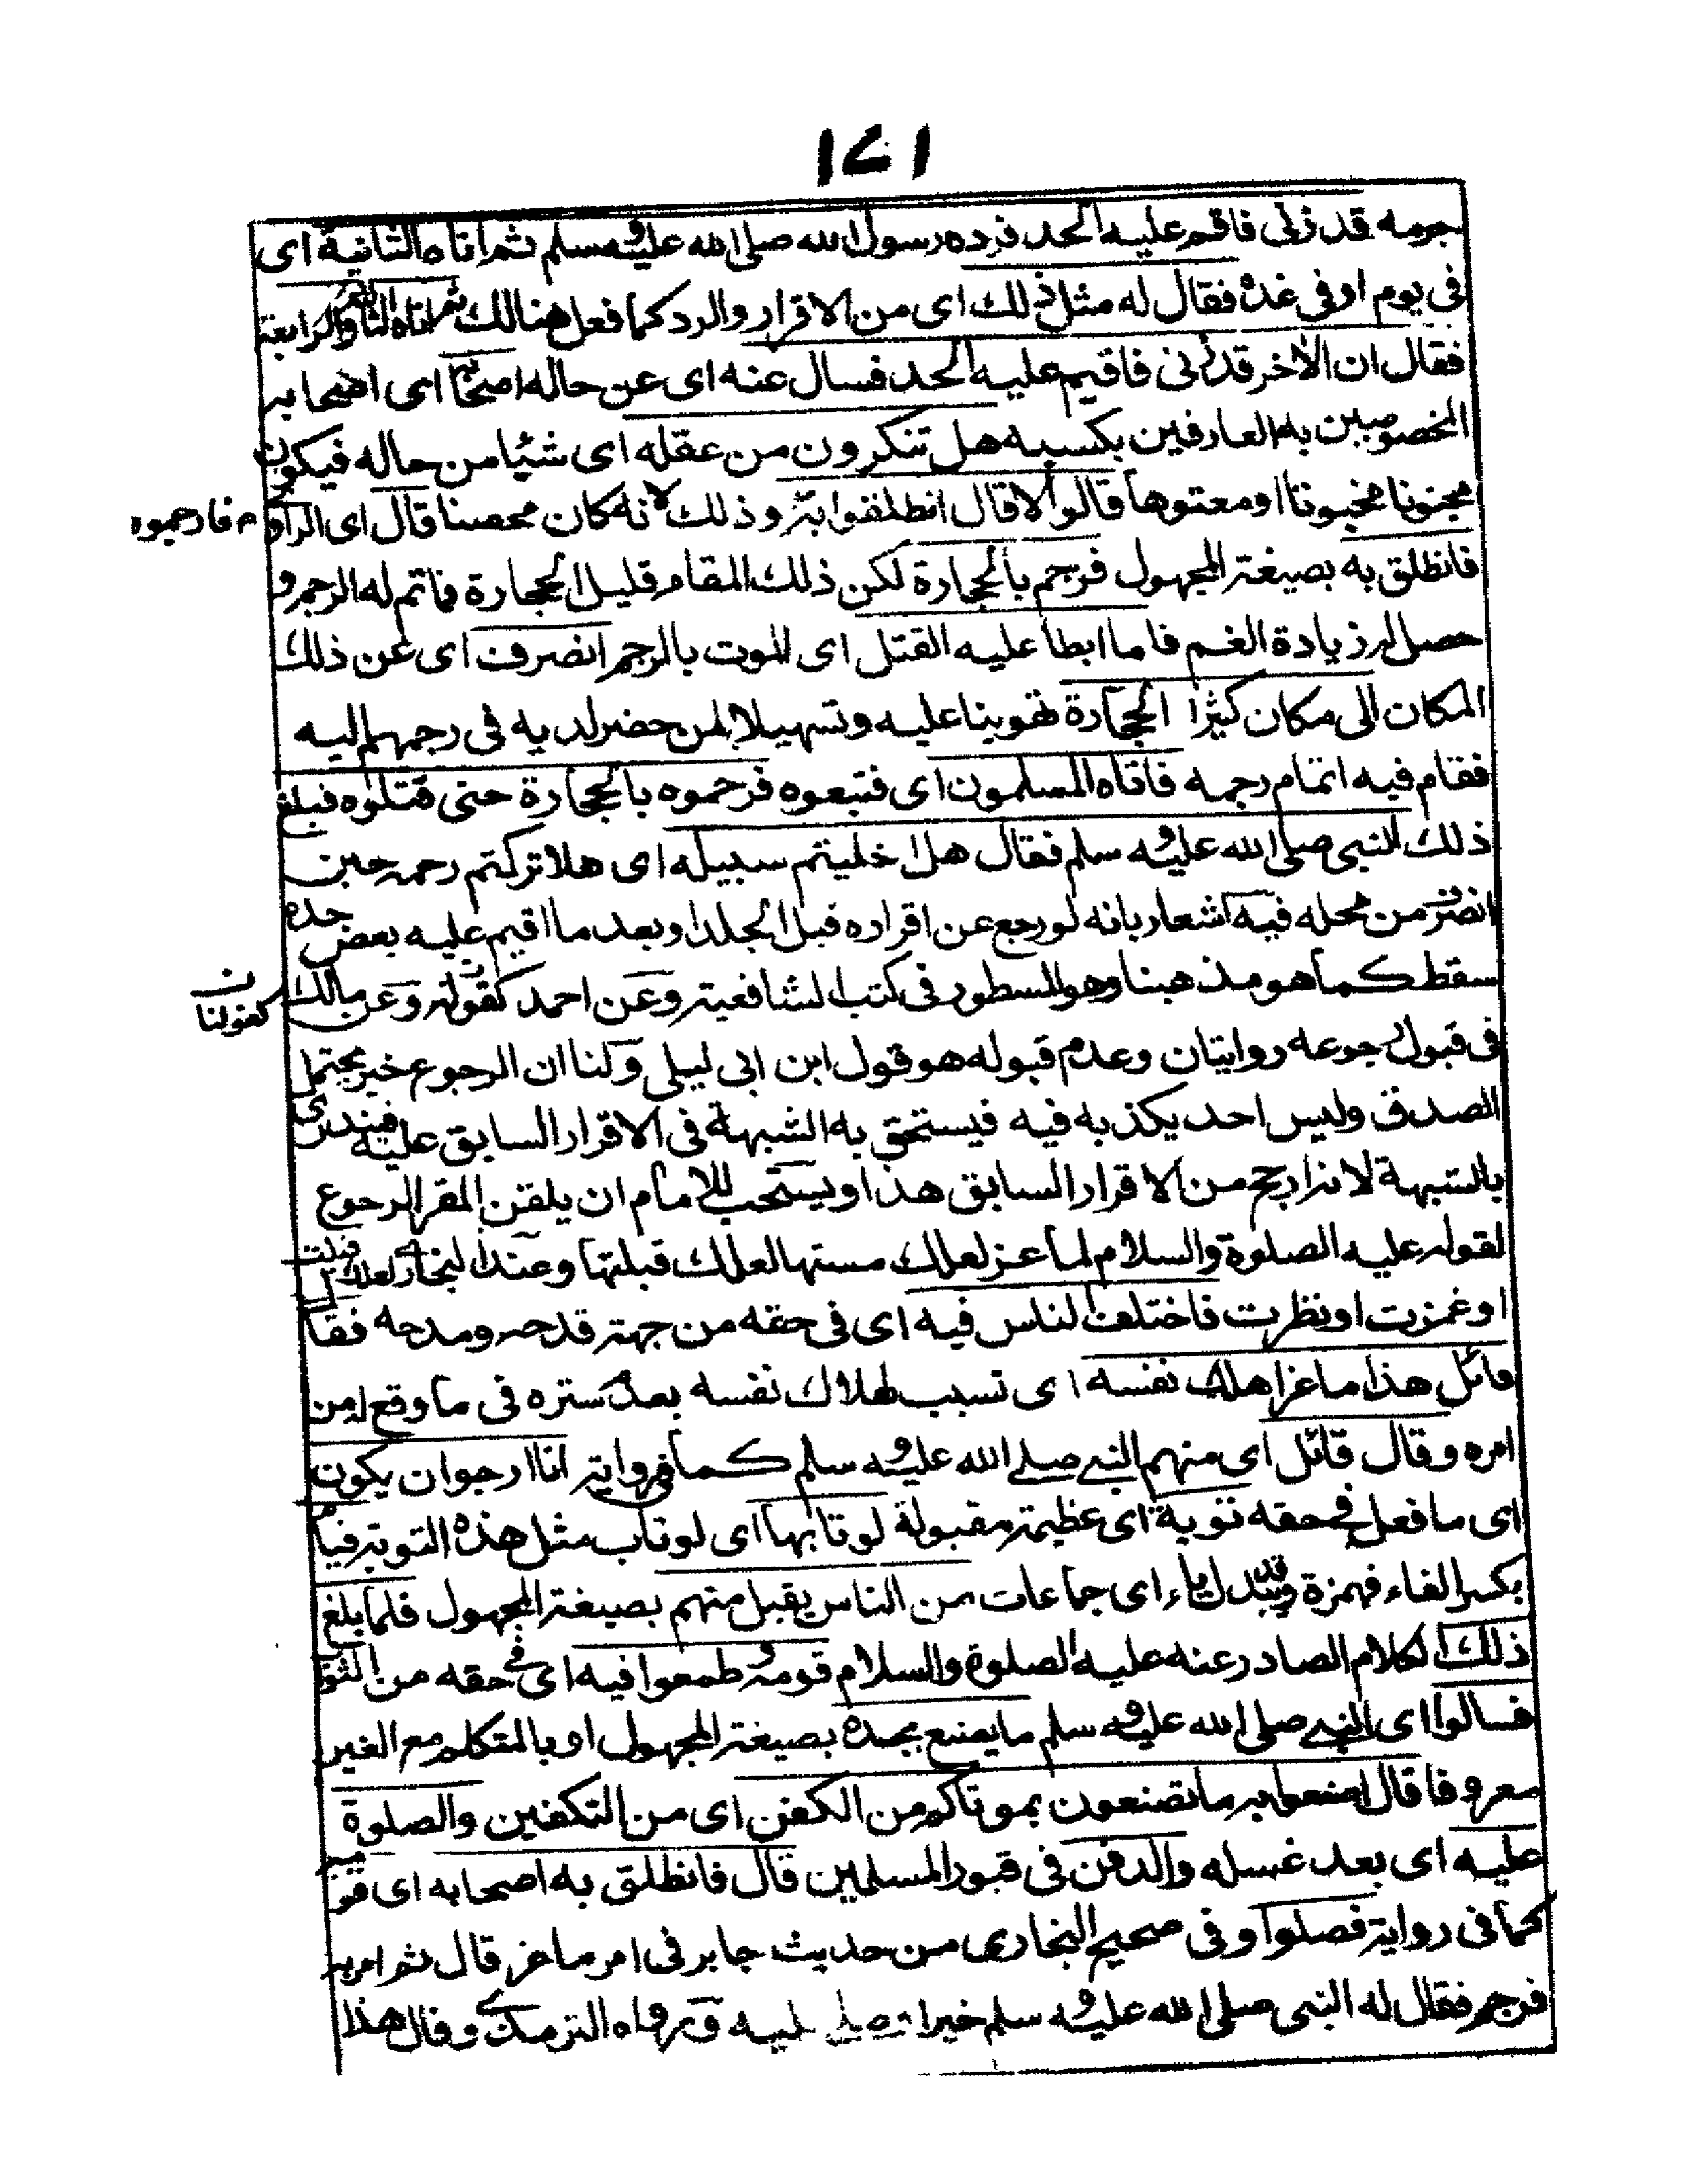 ١٤١
بجرمه قد زنى فاقم عليه الحد فرده رسول الله صلى الله عليه وسلم ثم اتاه الثانية اى
فى يوم او فى غده فقال له مثل ذلك اى من الاقرار والرد كما فعل هنالك ثم اتاه الثالثة والرابعة
فقال ان الاخر قد زنى فاقيم عليه الحد فسال عنه اى عن حاله اصحابه اى اصحابه
المخصوصين به العارفين بكسبه هل تنكرون من عقله اى شيئا من حاله فيكون
مجنونا مخبوتا او معتوها قالوا لا قال انطلقوا به وذلك لانه كان محصنا قال اى الراوى
فارجموه
فانطلق به بصيغة المجهول فرجم بالحجارة لكن ذلك المقام قليل الحجارة فما تم له الرجم و
حصل له زيادة الغم فاما ابطأ عليه القتل اى الموت بالرجم انصرف اى عن ذلك
المكان الى مكان كثير الحجارة تهوينا عليه وتسهيلا لمن حضر لديه فى رجمهم اليه
فقام فيه اتمام رجمه فاتاه المسلمون اى فتبعوه فرجموه بالحجارة حتى قتلوه فبلغ
ذلك النبى صلى الله عليه وسلم فقال هلا خليتم سبيله اى هلا تركتم رحمه حين
انصرف من محله فيه اشعار بانه لو رجع عن اقراره قبل الجلد او بعد ما اقيم عليه بعض حده
سقط كما هو مذهبنا وهو المسطور فى كتب الشافعية وعن احمد كقوله وعن مالك
كقولنا
فى قبول رجوعه روايتان وعدم قبوله هو قول ابن ابى ليلى ولنا ان الرجوع خبر يحتمل
الصدق وليس احد يكذبه فيه فيستحق به الشبهة فى الاقرار السابق عليه فيندرى
بالشبهة لانه ارجح من الاقرار السابق هذا ويستحب للامام ان يلقن المقر الرجوع
لقوله عليه الصلوة والسلام لماعز لعلك مستها لعلك قبلتها وعند البخارى لعلك قبلت
او غمزت او نظرت فاختلف الناس فيه اى فى حقه من جهة قدحه ومدحه فقال
قائل هذا ماعز اهلك نفسه اى تسبب لهلاك نفسه بعدم ستره فى ما وقع له من
امره وقال قائل اى منهم النبى صلى الله عليه وسلم كما فى رواية انا ارجوان يكون
اى ما فعل فى حقه توبة اى عظيمة مقبولة لو تاب بها اى لو تاب مثل هذه التوبة فيام
بكسر الفاء فهمزة وقد يبدل ياء اى جماعات من الناس يقبل منهم بصيغة المجهول فلما بلغ
ذلك الكلام الصادر عنه عليه الصلوة والسلام قومه وطمعوا فيه اى فى حقه من
فسالوا اى النبى صلى الله عليه وسلم ما يصنع بجسده بصيغة المجهول او بالمتكلم مع الغير
معروفا قال اصنعوا به ما تصنعون بموتاكم من الكفن اى من التكفين والصلوة
عليه اى بعد غسله والدفن فى قبور المسلمين قال فانطلق به اصحابه اى قومه
كما فى رواية فصلوا وفى صحيح البخارى من حديث جابر فى امر ماعز قال ثم امر به
فرجم فقال له النبى صلى الله عليه وسلم خيرا وصلى عليه ورواه الترمذى وقال هذا